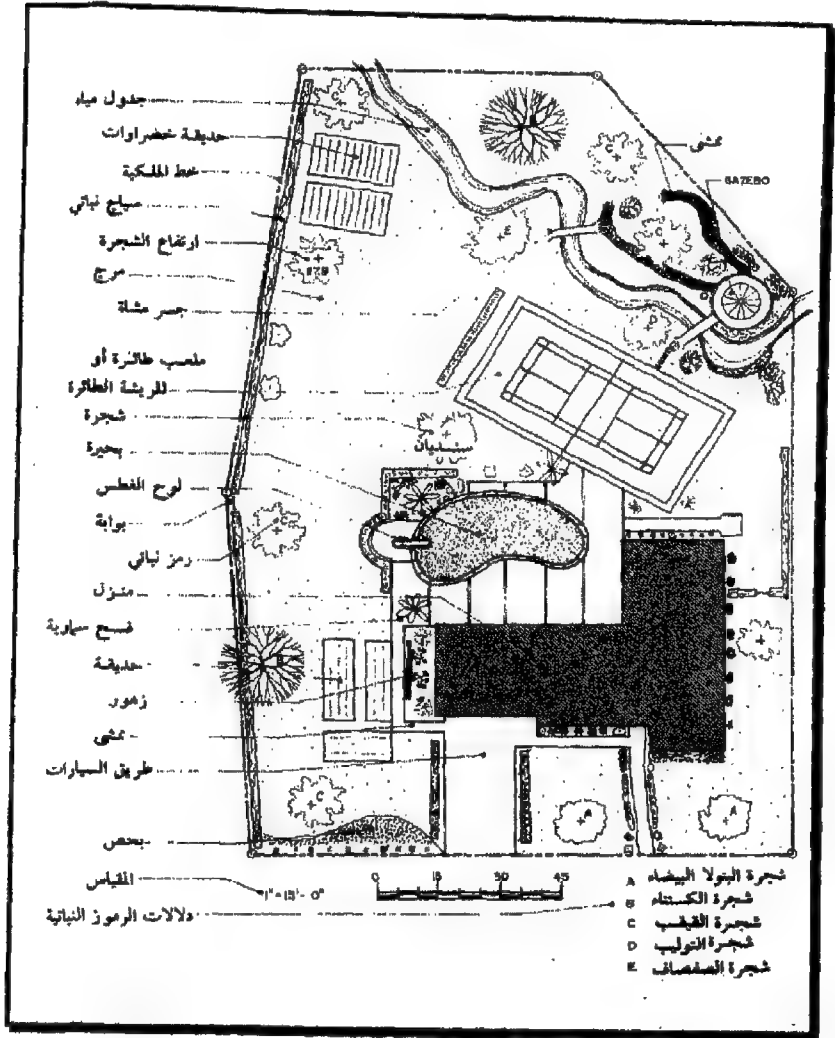 جدول مياه
حديقة خضراوات
خط الملكية
سياج نباتي
ارتفاع الشجرة
مرج
جسر مشاة
ملعب طائرة أو
للريشة الطائرة
شجرة
بحيرة
لوح الغطس
بوابة
رمز نباتي
منزل
سماوية
حديقة
زهور
ممشى
طريق السيارات
بحص
المقياس
دلالات الرموز النباتية
ممشى
GAZEBO
سنديان
C
C
E
C
D
C
C
A
A
1" = 15'- 0"
0 15 30 45
A شجرة البتولا البيضاء
B شجرة الكستناء
C شجرة القيقب
D شجرة التوليب
E شجرة الصفصاف